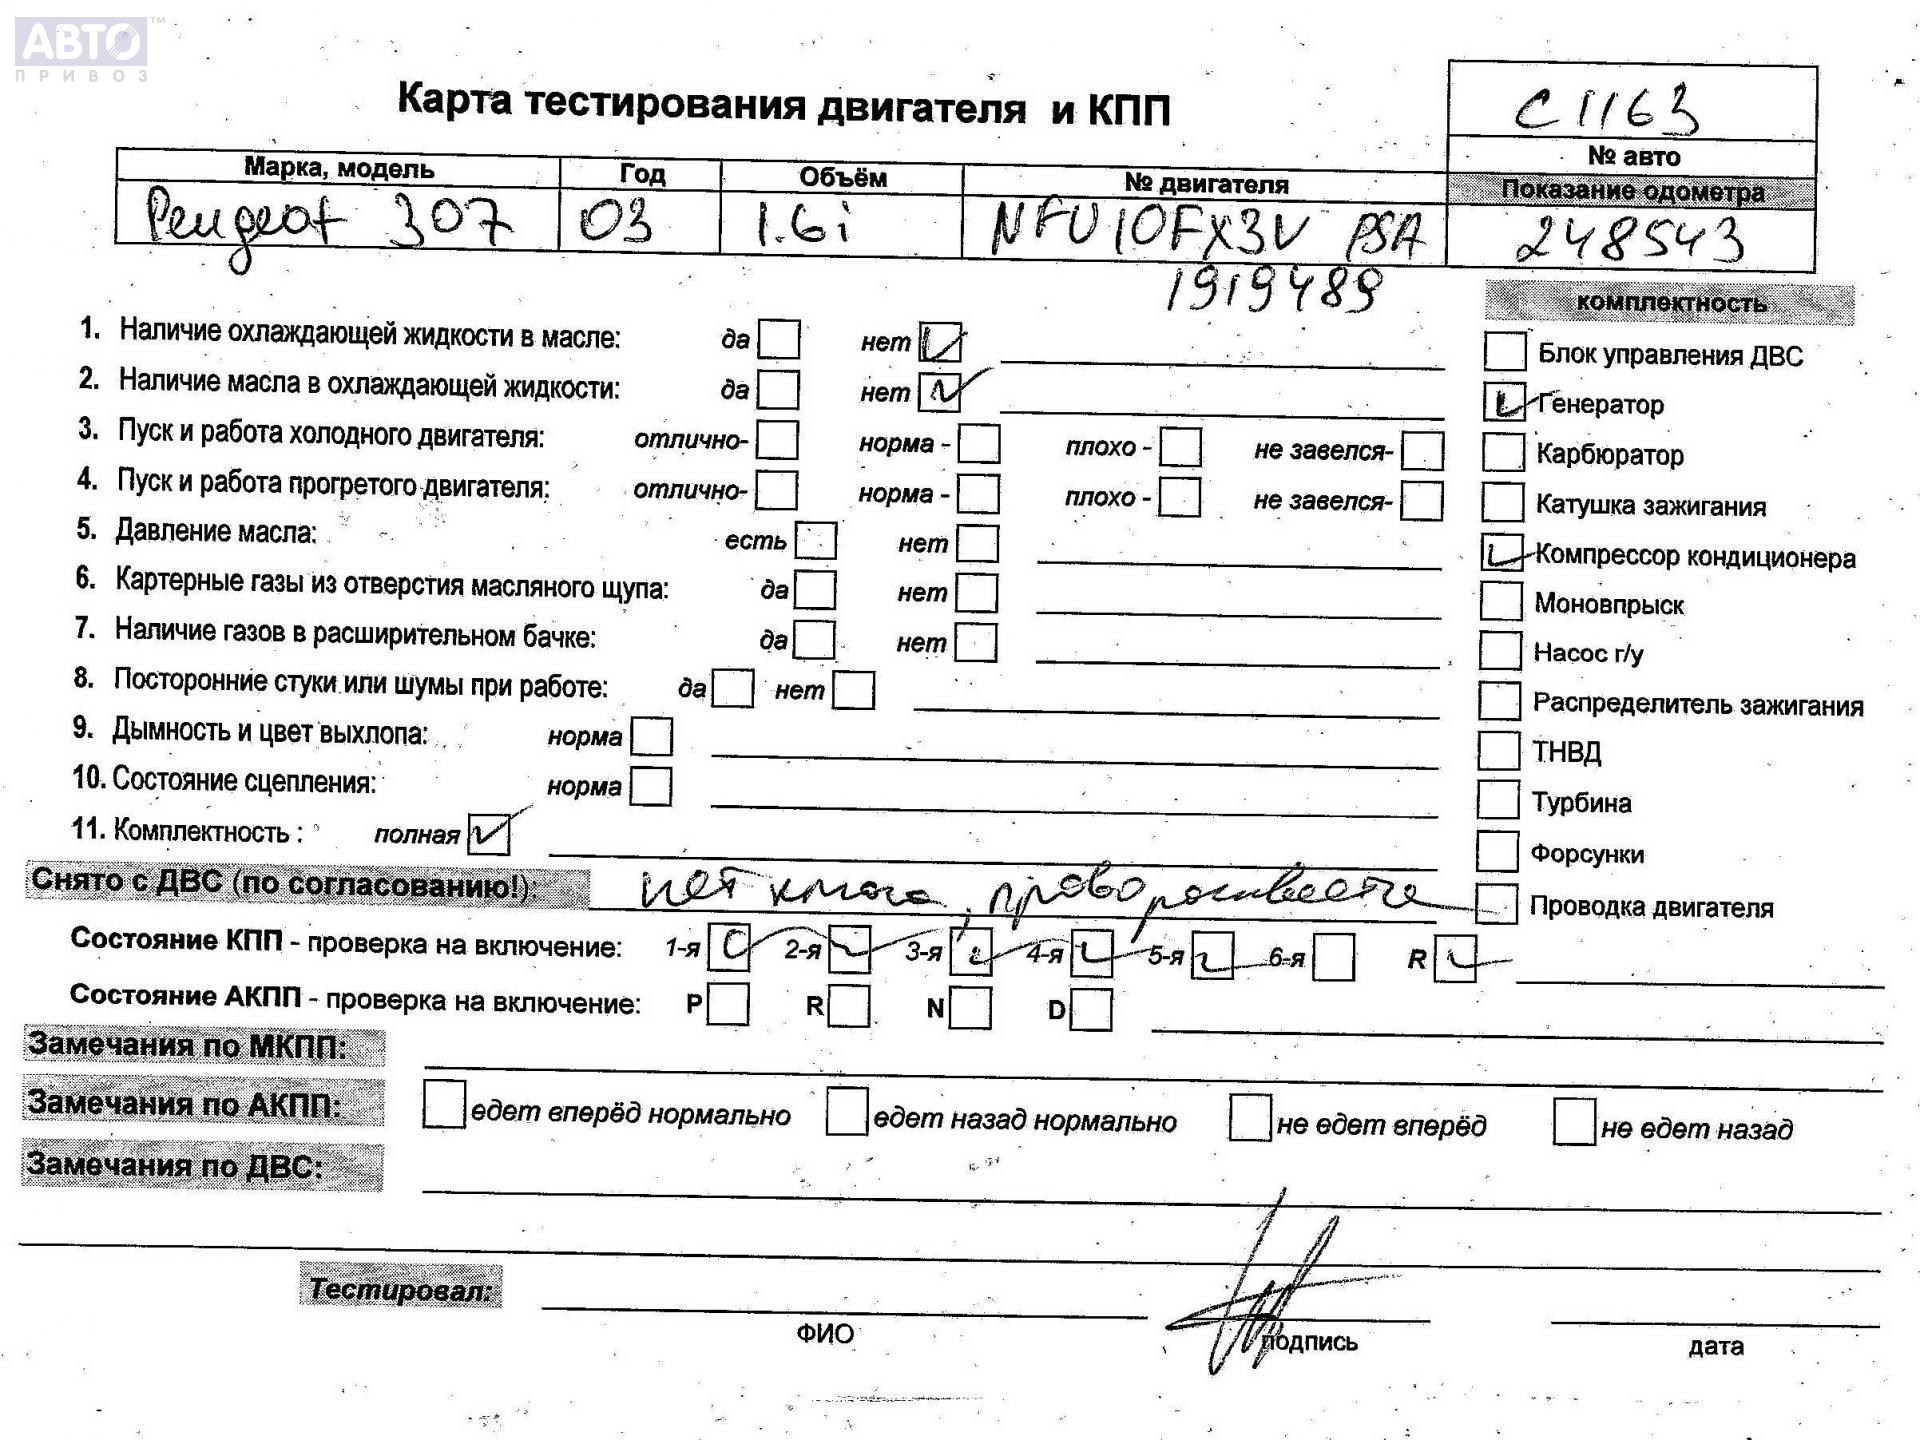 АВТО™
ПРИВОЗ
Карта тестирования двигателя и КПП
С1163
№ авто
Марка, модель Год Объём № двигателя Показание одометра
Peugeot 307 03 1.6i NFU 10FX3V PSA 248543
1919489
комплектность
1. Наличие охлаждающей жидкости в масле: да нет
Блок управления ДВС
2. Наличие масла в охлаждающей жидкости: да нет
Генератор
3. Пуск и работа холодного двигателя: отлично- норма - плохо - не завелся-
Карбюратор
4. Пуск и работа прогретого двигателя: отлично- норма - плохо - не завелся-
Катушка зажигания
5. Давление масла: есть нет
Компрессор кондиционера
6. Картерные газы из отверстия масляного щупа: да нет
Моновпрыск
7. Наличие газов в расширительном бачке: да нет
Насос г/у
8. Посторонние стуки или шумы при работе: да нет
Распределитель зажигания
9. Дымность и цвет выхлопа: норма
ТНВД
10. Состояние сцепления: норма
Турбина
11. Комплектность : полная
Форсунки
Снято с ДВС (по согласованию!): нет
Проводка двигателя
Состояние КПП - проверка на включение: 1-я 2-я 3-я 4-я 5-я 6-я R
Состояние АКПП - проверка на включение: P R N D
Замечания по МКПП:
Замечания по АКПП: едет вперёд нормально едет назад нормально не едет вперёд не едет назад
Замечания по ДВС:
Тестировал:
ФИО подпись дата